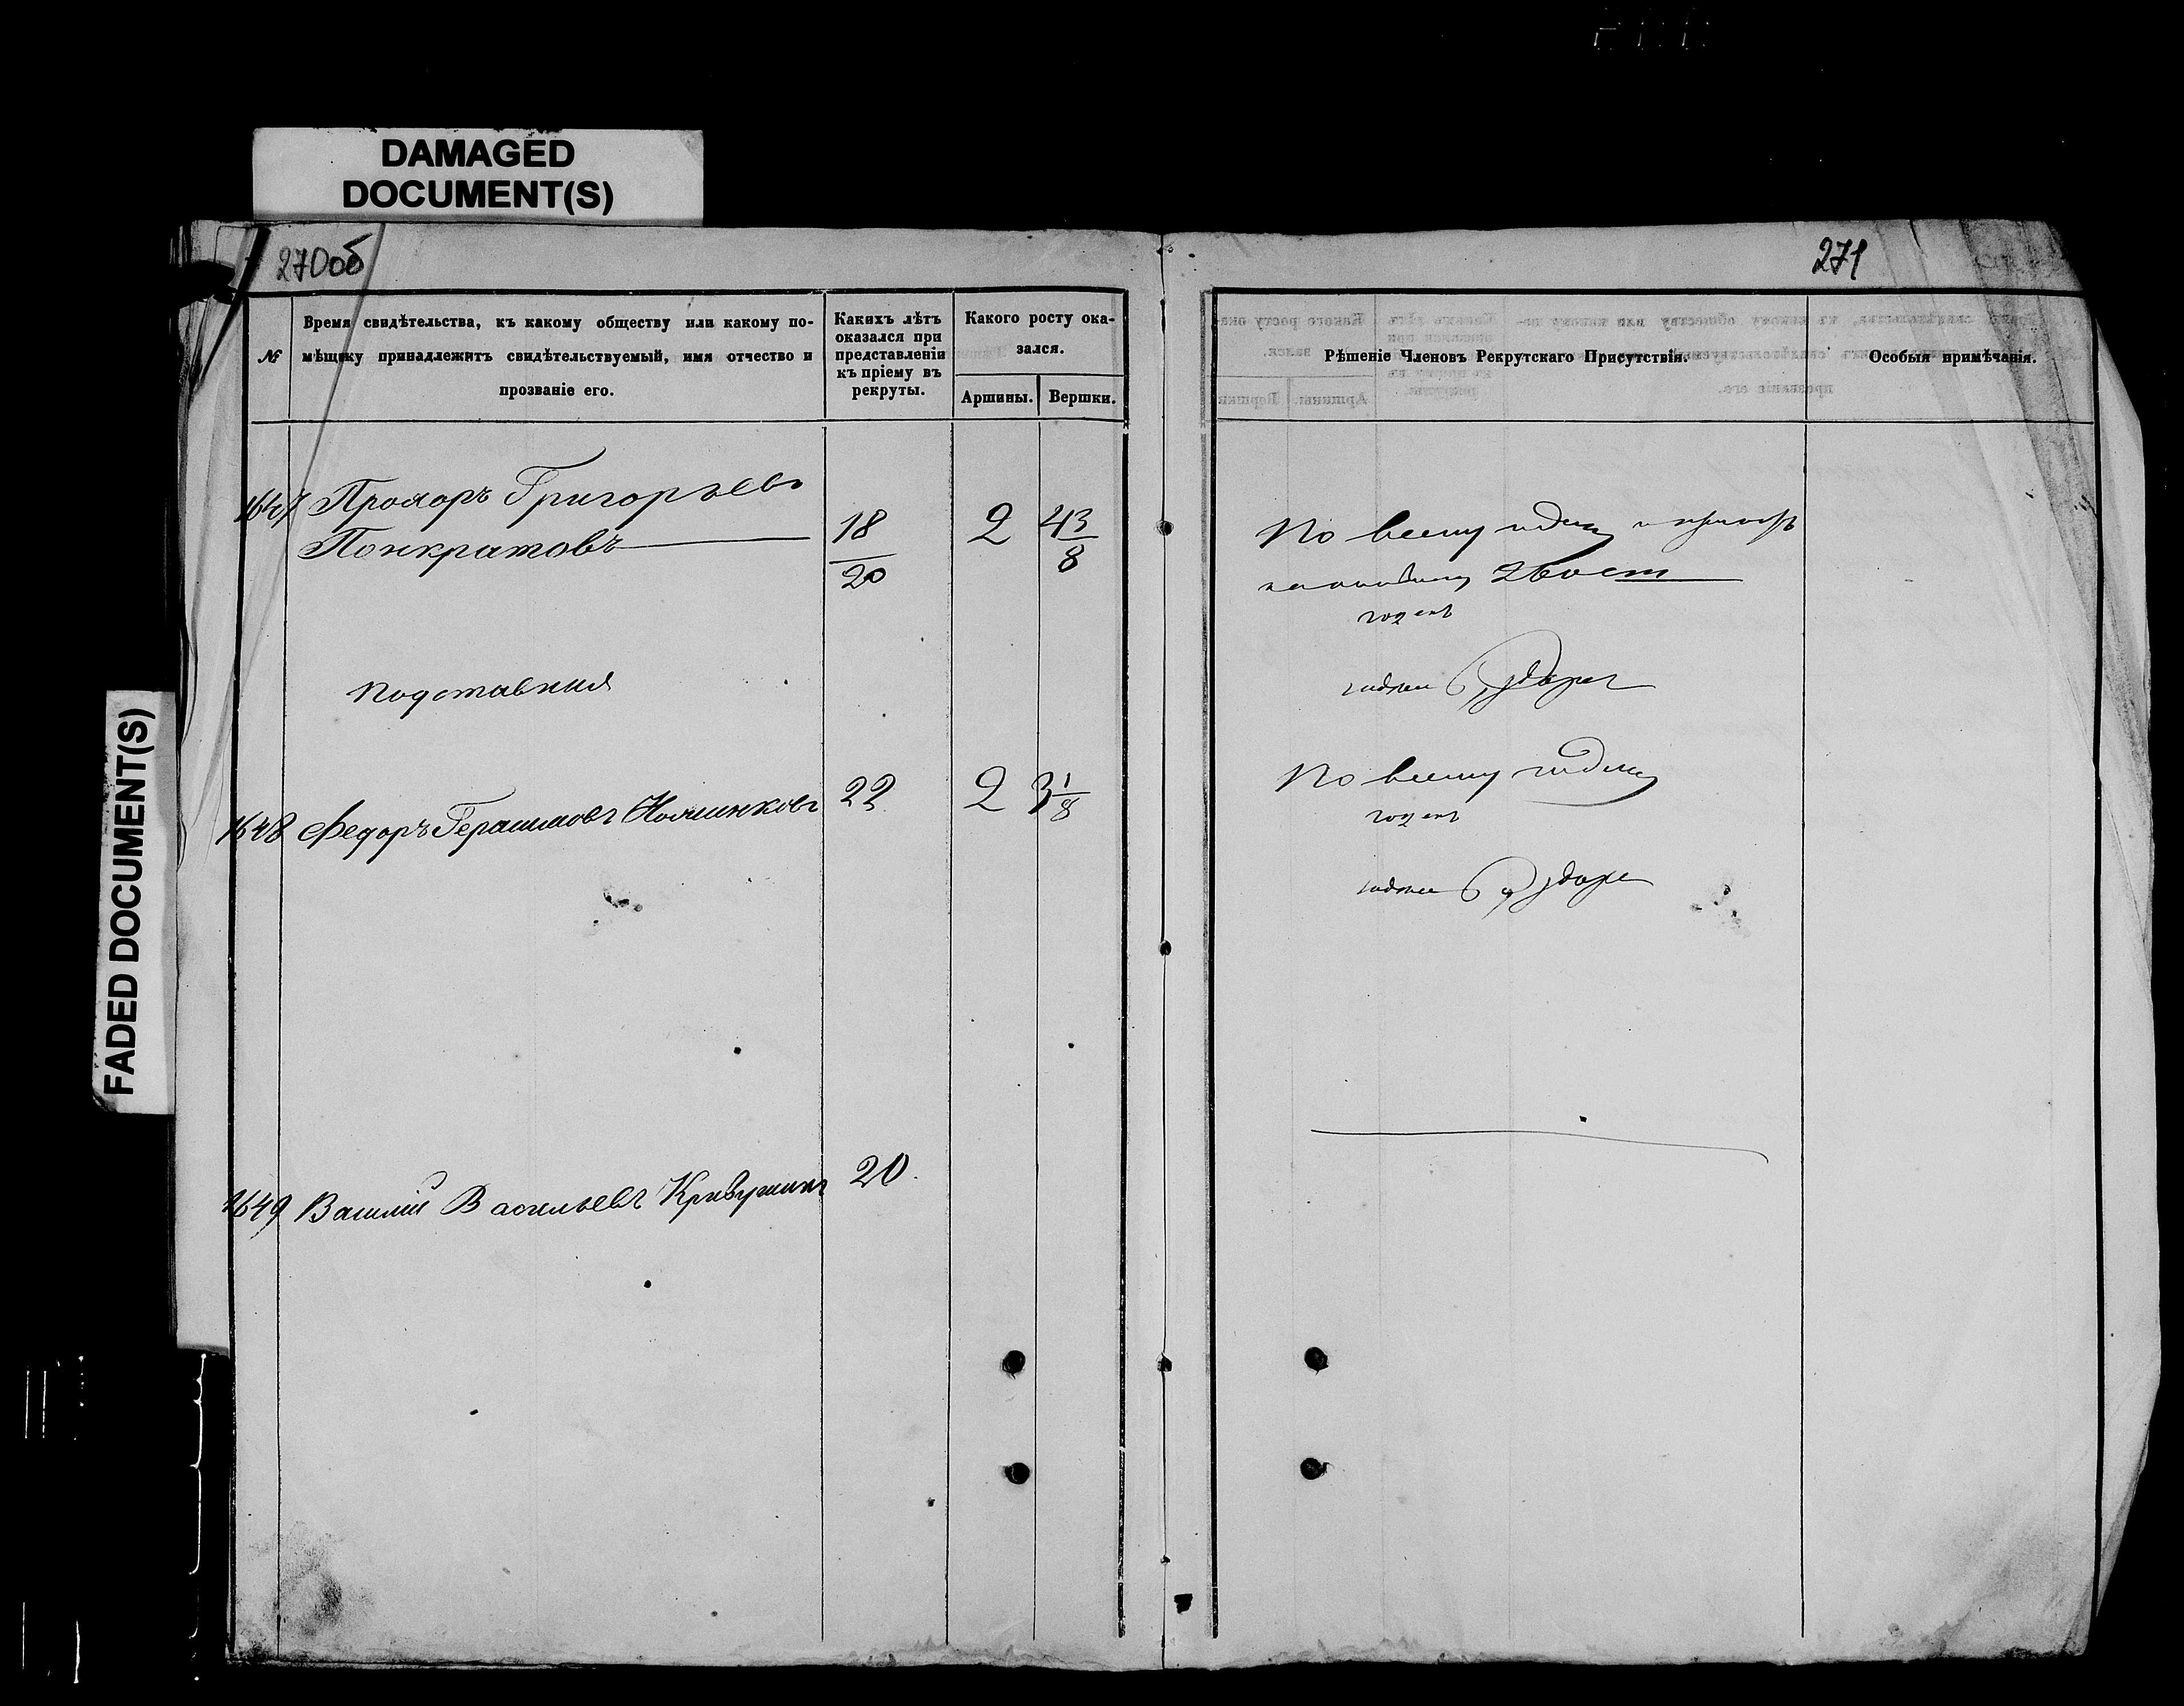 DAMAGED
DOCUMENT(S)
FADED DOCUMENT(S)
270об
271
№
Время свидѣтельства, къ какому обществу или какому по-
мѣщику принадлежитъ свидѣтельствуемый, имя отчество и
прозваніе его.
Какихъ лѣтъ
оказался при
представленіи
къ пріему въ
рекруты.
Какого росту ока-
зался.
Аршины.
Вершки.
Рѣшеніе Членовъ Рекрутскаго Присутствія.
Особыя примѣчанія.
1647 Прохоръ Григорьевъ
Понкратовъ
18
20
2
4 3/8
По всему годенъ
годенъ
подставная
годенъ
1648 Федоръ Герасимовъ
22
2
3 1/8
По всему годенъ
годенъ
годенъ
1649 Василій Васильевъ Кривушинъ
20.